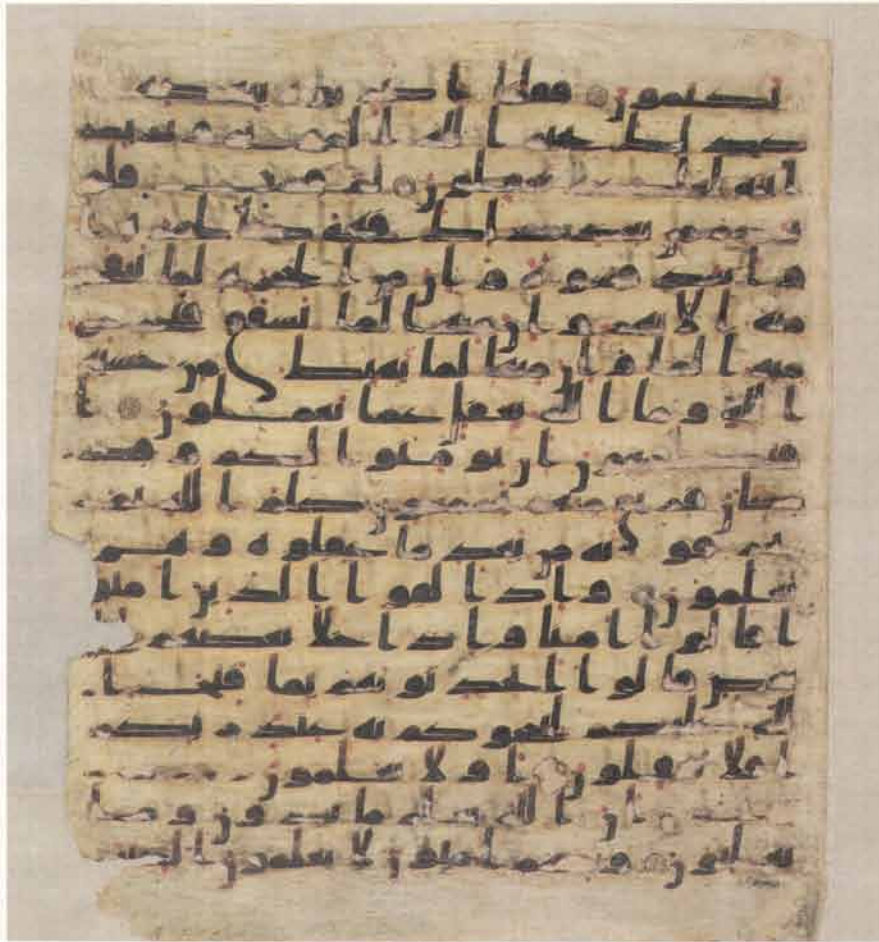 تكتمون فقلنا اضربوه ببعضها
كذلك يحي الله الموتى ويريكم
ايته لعلكم تعقلون ثم قست قلو
بكم من بعد ذلك فهي كالحجارة ا
و اشد قسوة وان من الحجارة لما يتفجر
منه الانهر وان منها لما يشقق فيخرج
منه الما وان منها لما يهبط من خشية
الله وما الله بغفل عما تعملون ا
فتطمعون ان يومنوا لكم وقد
كان فريق منهم يسمعون كلم الله ثم
يحرفونه من بعد ما عقلوه وهم
يعلمون واذا لقوا الذين امنوا
قالوا امنا واذا خلا بعضهم ا
لى بعض قالوا اتحدثونهم بما فتح ا
لله عليكم ليحاجوكم به عند ربكم
افلا تعقلون اولا يعلمون
ان الله يعلم ما يسرون وما
يعلنون ومنهم اميون لا يعلمون الكتب